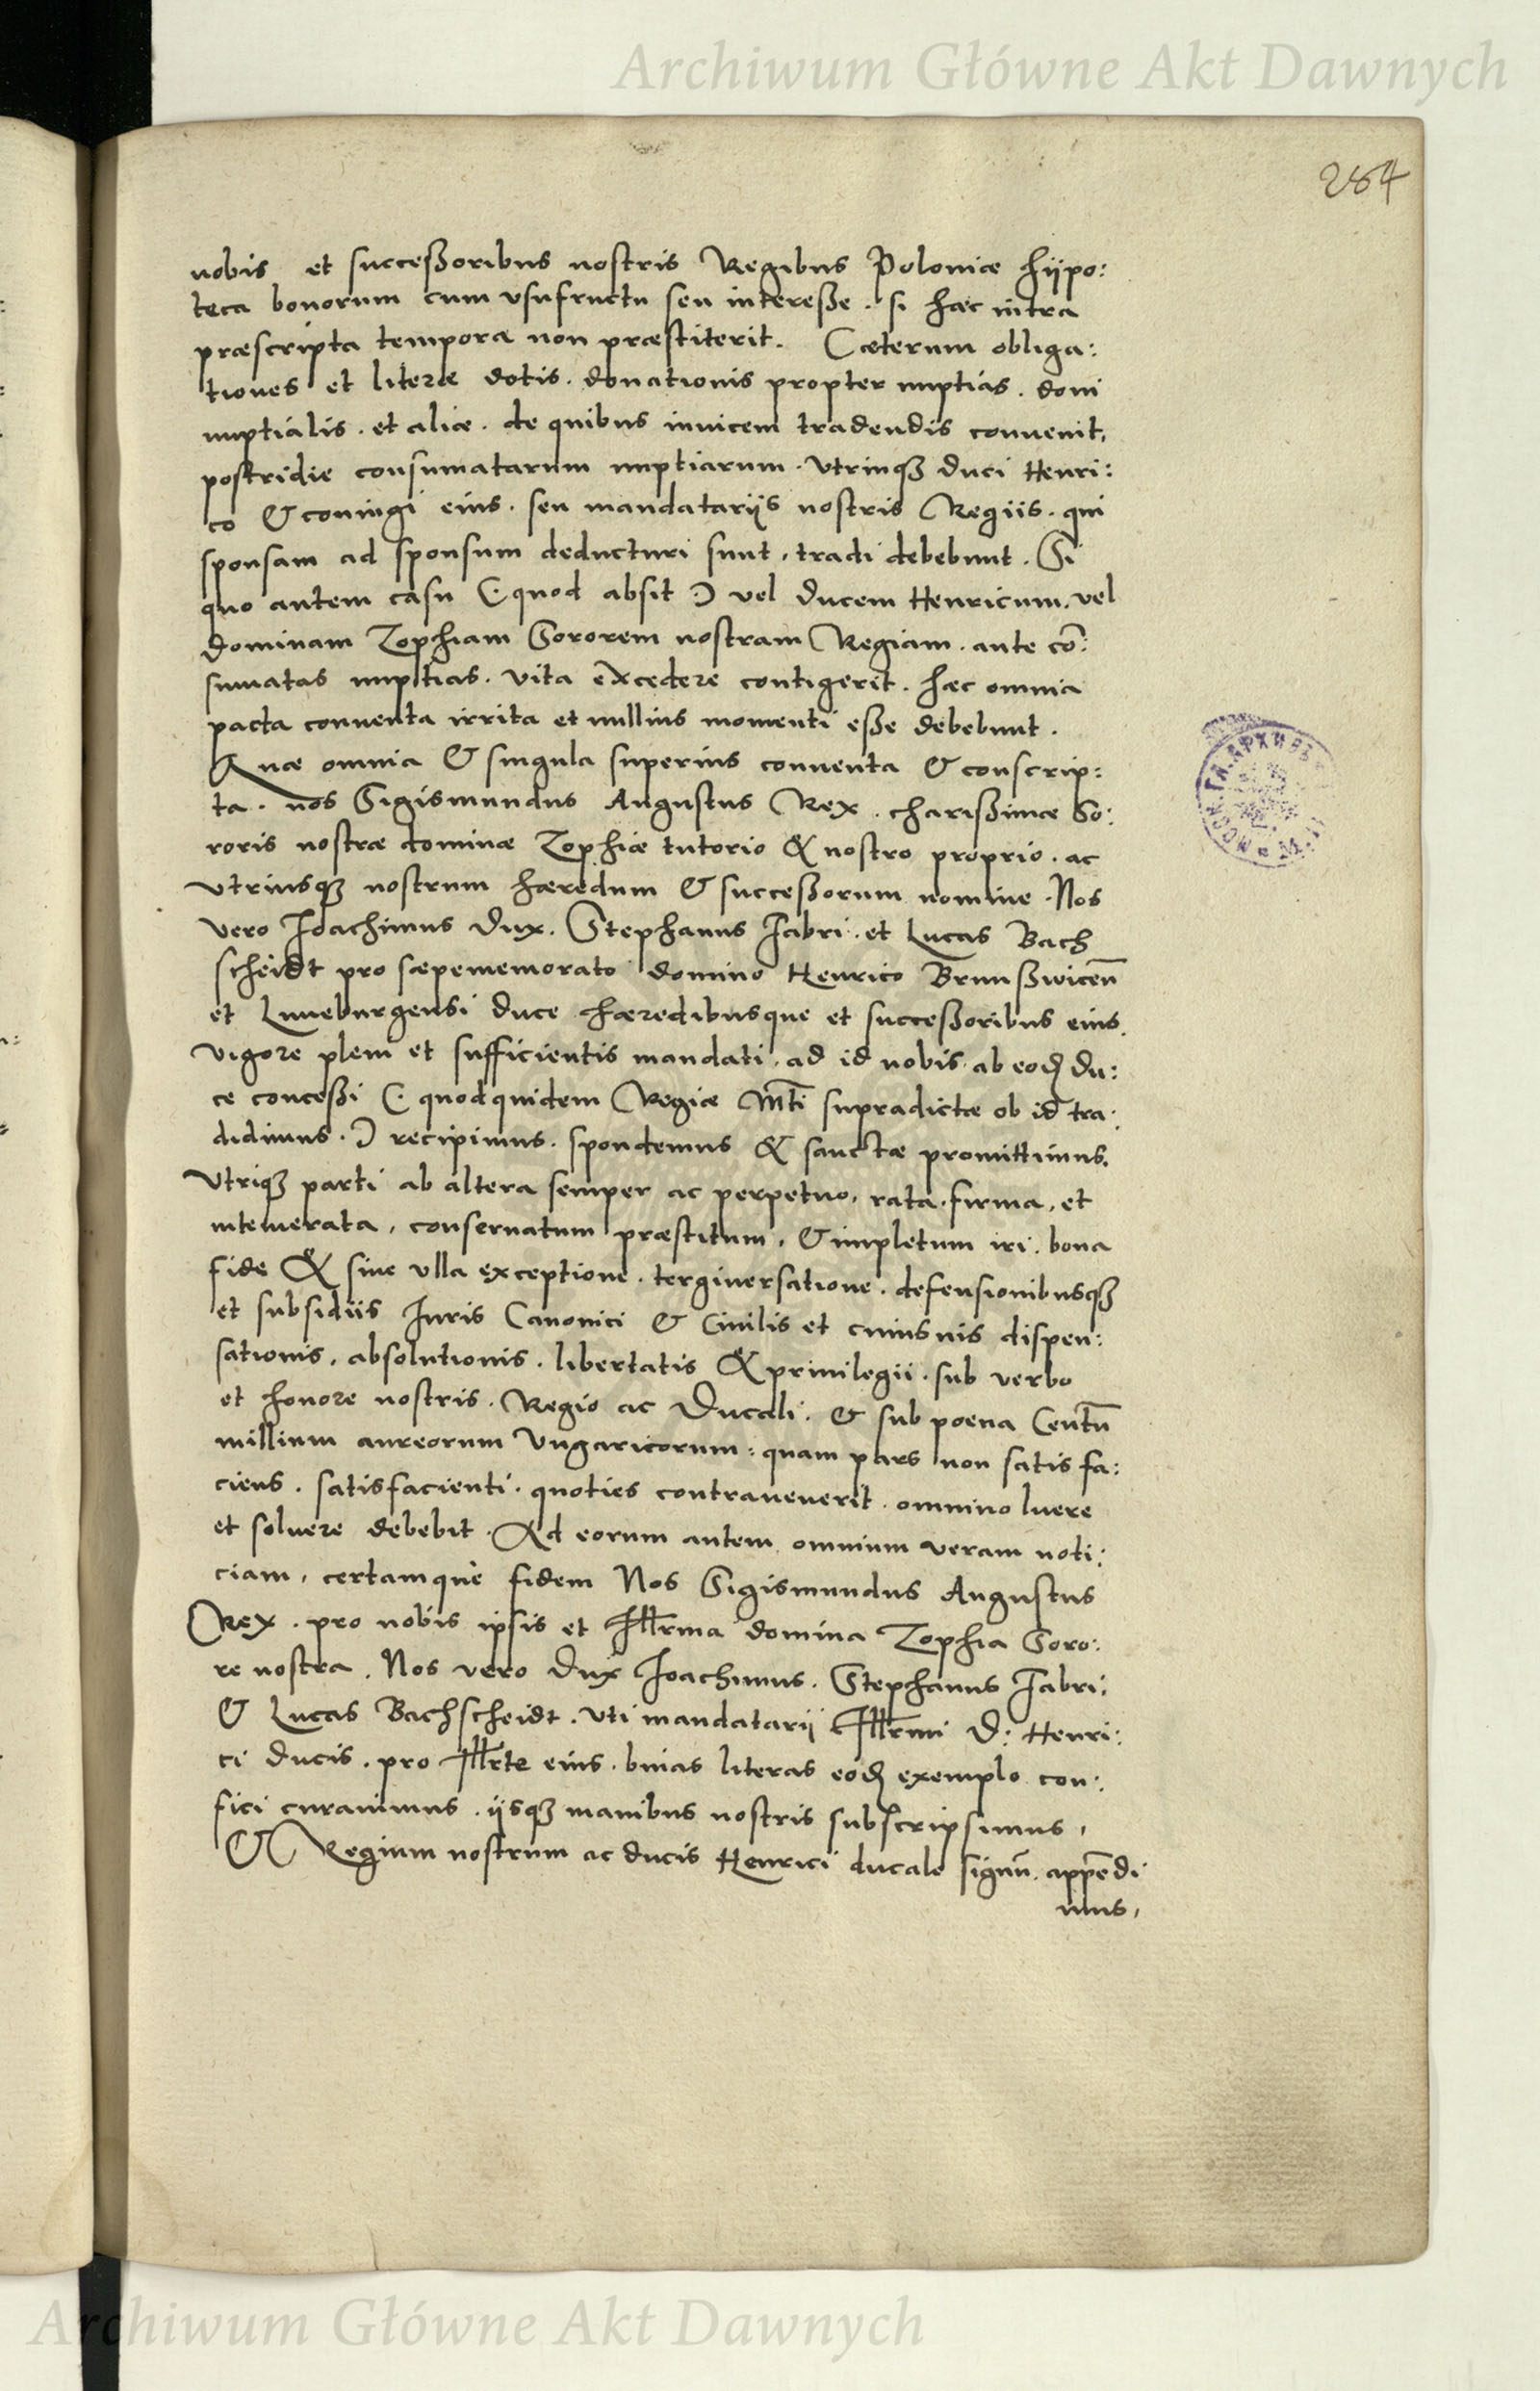 Archiwum Główne Akt Dawnych
284
nobis et successoribus nostris Regibus Poloniæ hijpo:
teca bonorum cum vsufructu seu interesse . si hæc intra
præscripta tempora non præstiterit. Cæterum obliga:
tiones et literæ dotis . donationis propter nuptias . doni
nuptialis . et aliæ . de quibus inuicem tradendis conuenit,
postridie consumatarum nuptiarum . vtrinqꝫ duci Henri:
co & coniugi eius . seu mandatarijs nostris Regiis . qui
sponsam ad sponsum deducturi sunt, tradi debebunt . Si
quo autem casu (: quod absit ) vel ducem Henricum, vel
dominam Zophiam Sororem nostram Regiam . ante cõ:
sumatas nuptias . vita excedere contigerit . hæc omnia
pacta conuenta irrita et nullius momenti esse debebunt .
Quæ omnia & singula superius conuenta & conscrip:
ta . nos Sigismundus Augustus Rex . charissimæ So:
roris nostræ dominæ Zophiæ tutorio & nostro proprio . ac
vtriusqꝫ nostrum hæredum & successorum nomine . Nos
vero Joachimus Dux . Stephanus Fabri . et Lucas Bach
scheidt pro sæpememorato domino Henrico Brunsswiceñ
et Luneburgensi duce hæredibusque et successoribus eius,
vigore pleni et sufficientis mandati, ad id nobis ab eod. du:
ce concessi (: quodquidem Regiæ Mti supradictæ ob id tra:
didimus . ) recipimus . spondemus & sanctæ promittimus,
vtriqꝫ parti ab altera semper ac perpetuo, rata . firma, et
intemerata, conseruatum præstitum, & impletum iri . bona
fide & sine vlla exceptione . tergiuersatione . defensionibusqꝫ
et subsidiis Juris Canonici & Ciuilis et cuiusuis dispen:
sationis, absolutionis . libertatis & priuilegii . sub verbo
et honore nostris . Regio ac Ducali . & sub poena Centũ
millium aureorum Vngaricorum : quam pars non satis fa:
ciens . satisfacienti . quoties contrauenerit . omnino luere
et soluere debebit . Ad eorum autem omnium veram noti:
ciam, certamque fidem Nos Sigismundus Augustus
Rex . pro nobis ipsis et Illrma domina Zophia Soro:
re nostra . Nos vero Dux Joachimus . Stephanus Fabri:
& Lucas Bachscheidt . vti mandatarii Illrmi D: Henri:
ci ducis . pro Illrte eius . binas literas eod. exemplo con:
fici curauimus . ijsqꝫ manibus nostris subscripsimus,
& Regium nostrum ac ducis Henrici ducale signũ appẽdi
mus,
Archiwum Główne Akt Dawnych